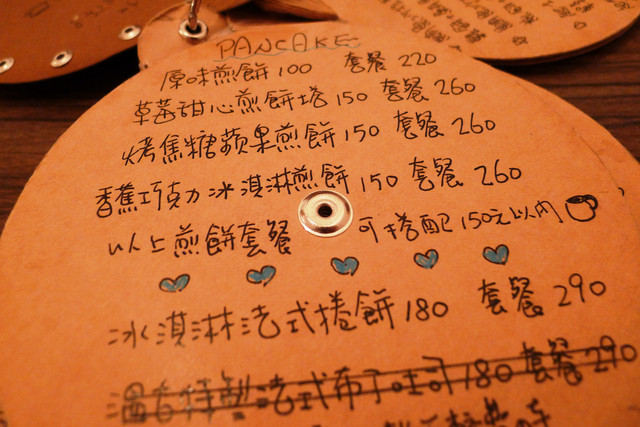 PANCAKE
原味煎餅 100 套餐 220
草莓甜心煎餅塔 150 套餐 260
烤焦糖蘋果煎餅 150 套餐 260
香蕉巧克力冰淇淋煎餅 150 套餐 260
以上煎餅套餐 可搭配 150元以內
冰淇淋法式捲餅 180 套餐 290
溫古特製法式布丁吐司 180 套餐 290